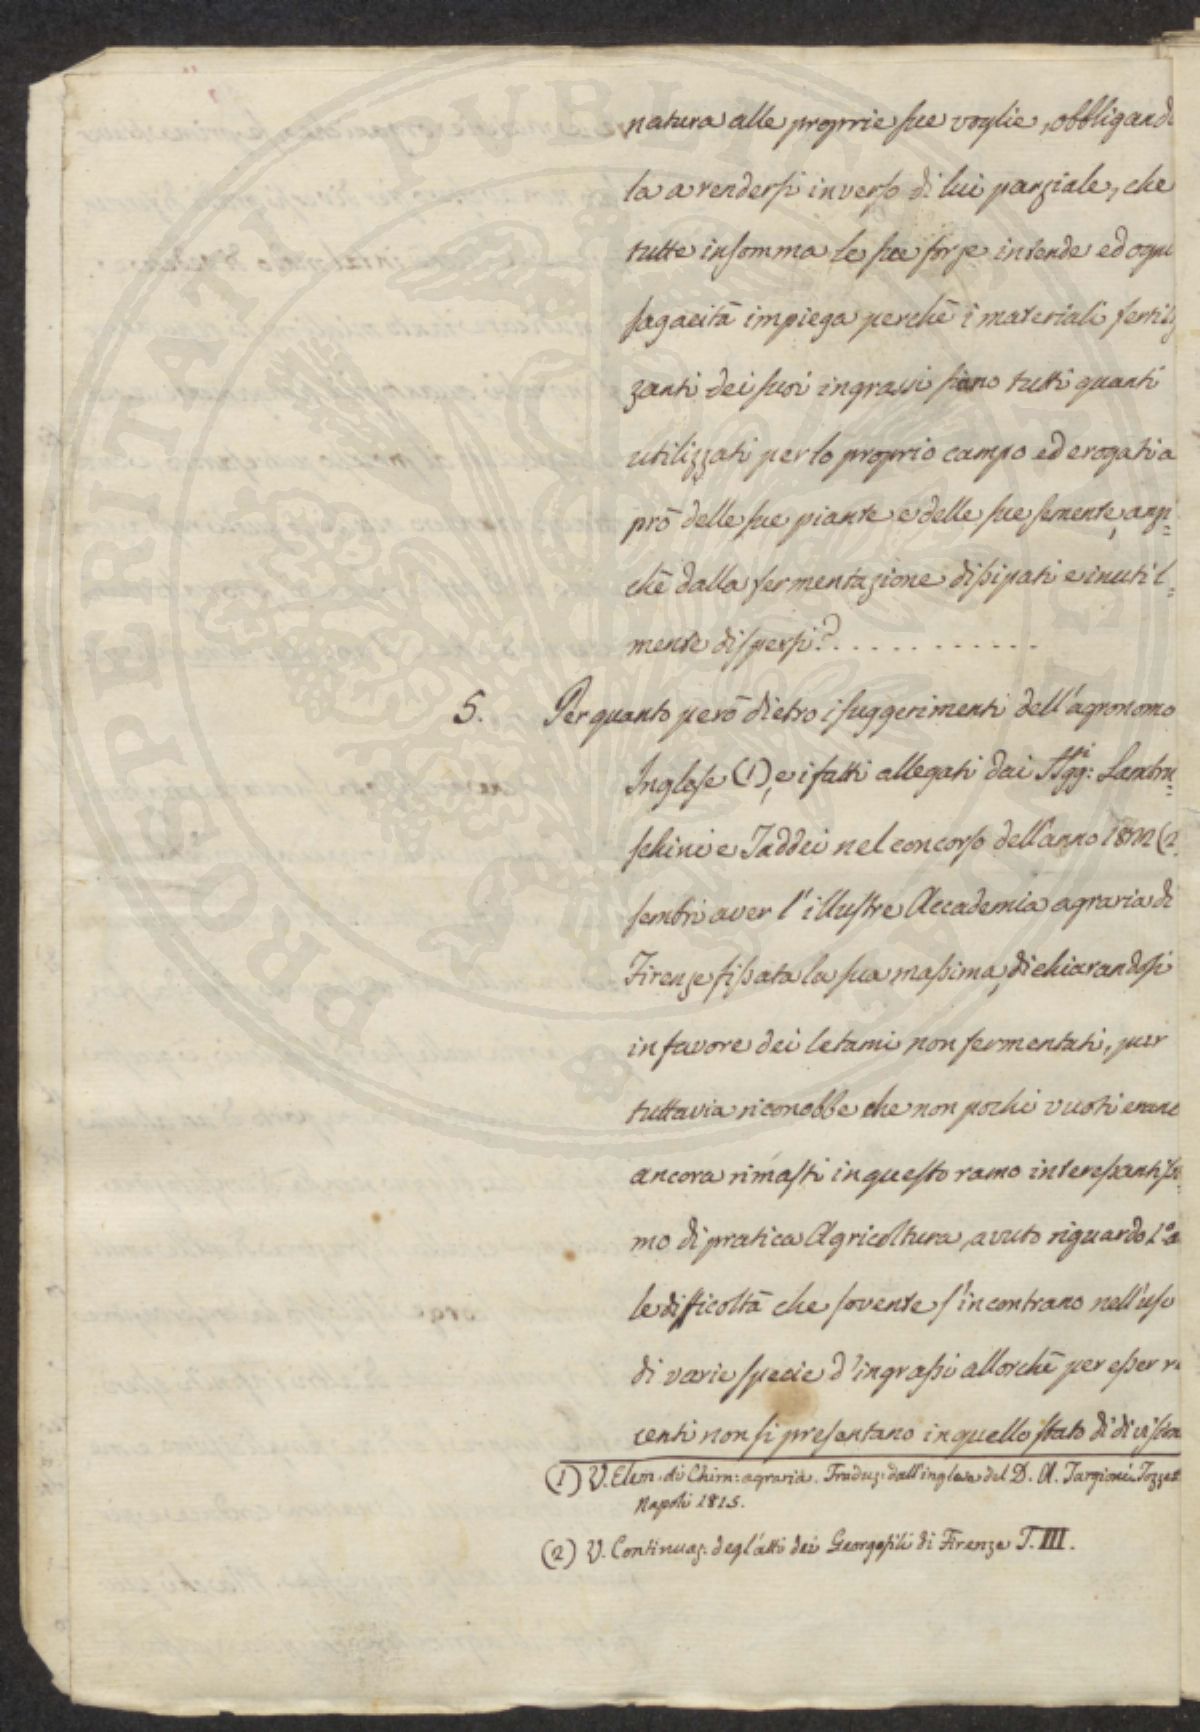 natura alle proprie sue voglie, obbligando
la a rendersi inverso di lui parziale, che
tutte insomma le sue forze intende ed ogni
sagacità impiega perchè i materiali fertiliz
zanti dei suoi ingrassi siano tutti quanti
utilizzati per lo proprio campo ed erogati a
prò delle sue piante e delle sue semente, anzi=
chè dalla fermentazione dissipati e inutil=
mente dispersi? . . . . . . . . . . . .
5. Per quanto però dietro i suggerimenti dell'agronomo
Inglese (1), e i fatti allegati dai SSigg:ri Lambru=
schini e Taddei nel concorso dell'anno (2
sembri aver l'illustre Accademia agraria di
Firenze fissata la sua massima, dichiarandosi
in favore dei letami non fermentati, pur
tuttavia riconobbe che non pochi vuoti erano
ancora rimasti in questo ramo interessantissi=
mo di pratica Agricoltura, avuto riguardo 1.° a
le difficoltà che sovente s'incontrano nell'uso
di varie specie d'ingrassi allorchè per esser re
centi non si presentano in quello stato di divisione
(1) V. Elem. di Chim: agraria. Traduz: dall'inglese del D. A. Targioni Tozzetti
Napoli 1815.
(2) V. Continuaz: degl'atti dei Georgofili di Firenze T. III.
PROSPERITATI PUBLICAE AUGENDAE